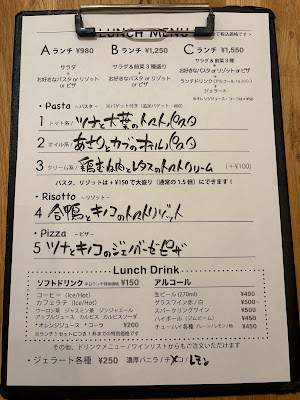 LUNCH MENU
Aランチ ¥980 Bランチ ¥1,250 Cランチ ¥1,550
サラダ サラダ&前菜3種盛り サラダ&前菜3種
+ + +
お好きなパスタorリゾット お好きなパスタorリゾット お好きなパスタorリゾット
orピザ orピザ orピザ
+
ランチドリンク
+
ジェラート
・Pasta -パスタ-
1 トマト系/ ツナと大葉のトマトパスタ
2 オイル系/ あさりとカブのオイルパスタ
3 クリーム系/ 鶏むね肉とレタスのトマトクリーム (+¥100)
パスタ、リゾットは+¥150で大盛り(通常の1.5倍)にできます!
・Risotto -リゾット-
4 合鴨とキノコのトマトリゾット
・Pizza -ピザ-
5 ツナとキノコのジェノベーゼピザ
Lunch Drink
ソフトドリンク ¥150 アルコール
コーヒー (Ice/Hot) 生ビール(270ml) ¥490
カフェラテ (Ice/Hot) グラスワイン 赤/白 ¥500
ウーロン茶 ジャスミン茶 ジンジャーエール スパークリングワイン ¥500
アップルジュース カルピス カルピスソーダ ハイボール(ジムビーム) ¥450
*オレンジジュース *コーラ ¥200 チューハイ各種 プレーン/レモン/他 ¥450
※ランチ1セットにつき1杯までの特別価格です
その他、ドリンクメニュー/ワインリストからもご注文いただけます
・ジェラート各種 ¥250 濃厚バニラ/チョコ/レモン